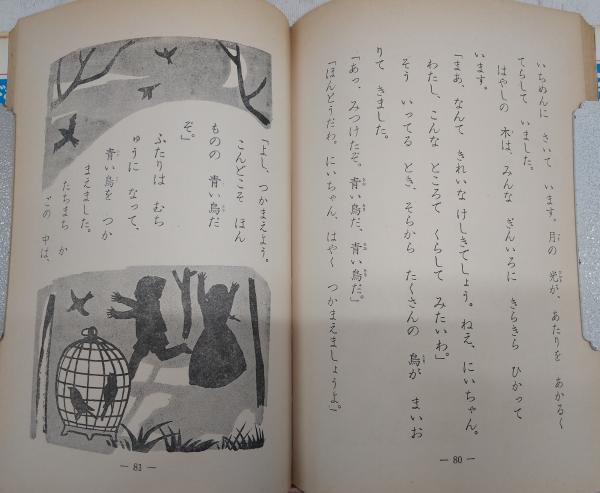 いちめんに さいて います。月の 光が、あたりを あかるく
てらして いました。
はやしの 木は、みんな ぎんいろに きらきら ひかって
います。
「まあ、なんて きれいな けしきでしょう。ねえ、にいちゃん。
わたし、こんな ところで くらして みたいわ。」
そう いってる とき、そらから たくさんの 鳥が まいお
りて きました。
「あっ、みつけたぞ。青い鳥だ、青い鳥だ。」
「ほんとうだわ。にいちゃん、はやく つかまえましょうよ。」
— 80 —
「よし、つかまえよう。
こんどこそ ほん
ものの 青い鳥だ
ぞ。」
ふたりは むち
ゅうに なって、
青い鳥を つか
まえました。
たちまち か
ごの 中は、
— 81 —